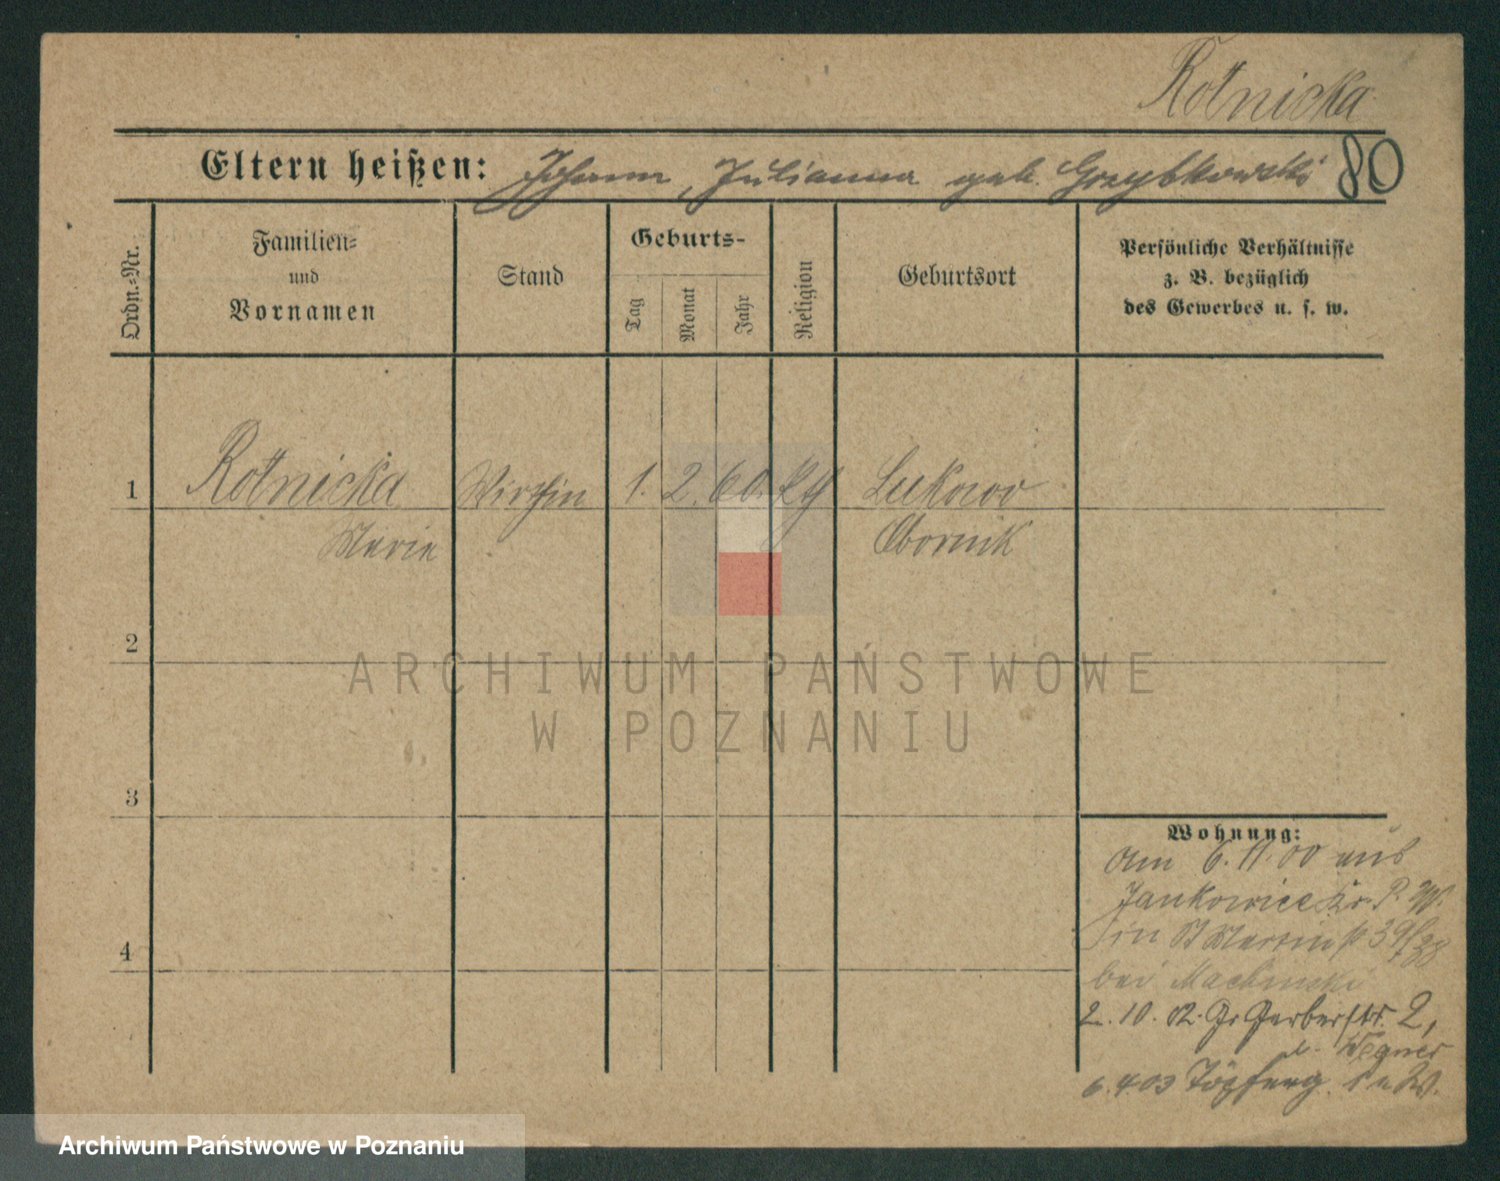 Rotnicka
Eltern heißen: Johann, Julianna geb. Grzybkowski 80
Ordn.-Nr.
Familien-
und
Vornamen
Stand
Geburts-
Tag
Monat
Jahr
Religion
Geburtsort
Persönliche Verhältnisse
z. B. bezüglich
des Gewerbes u. s. w.
1 Rotnicka Wirthin 1. 2. 60. kth Lukowo
Marie Obornik
2
ARCHIWUM PAŃSTWOWE
W POZNANIU
3
Wohnung:
am 6. 11. 00 aus
Jankowice Kr. P. W.
in St Martinst 39/
bei
2. 10. 02. Gr Gerberstr. 2,
Wegner
6. 4. 03
4
Archiwum Państwowe w Poznaniu